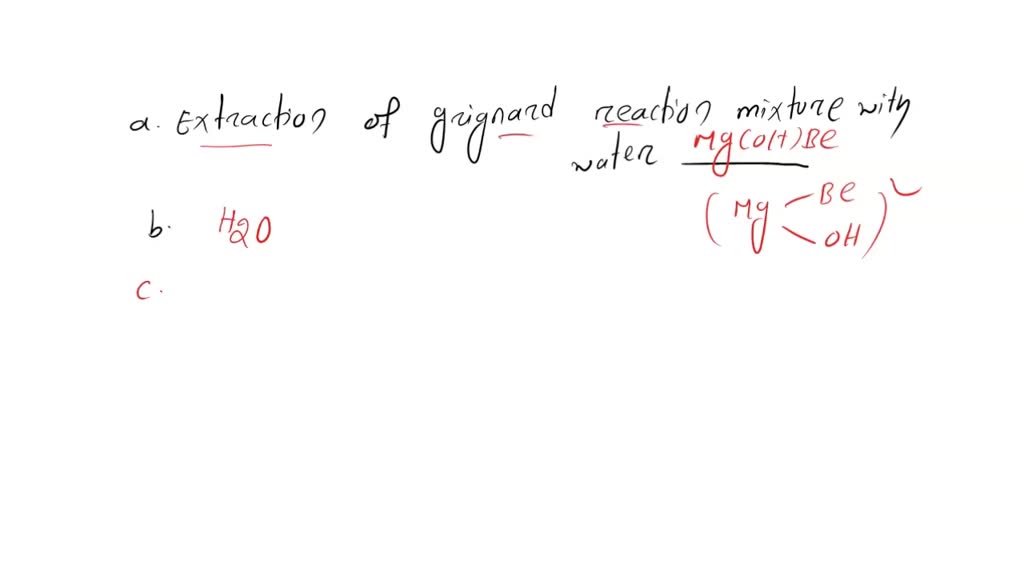 a. Extraction of grignard reaction mixture with
water Mg(OH)Be
(Mg Be OH)
b. H2O
c.